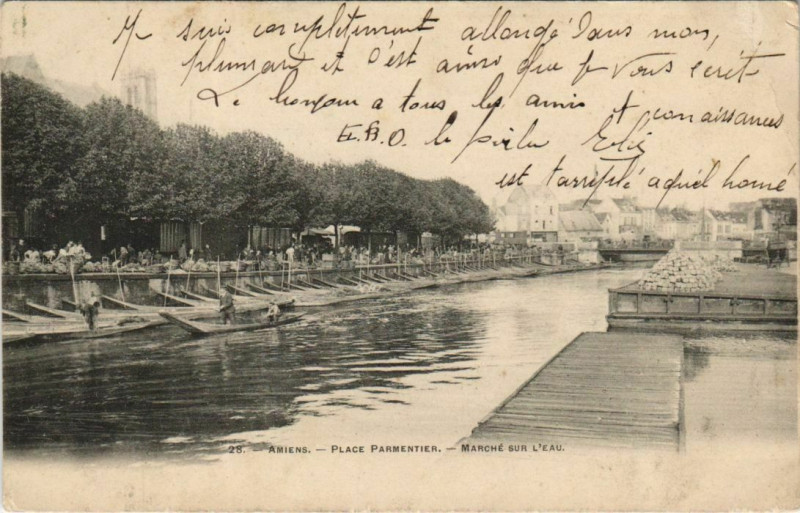 suis complettement allongé dans mon,
plumard et c'est ainsi que je vous écrit
Le bonjour a tous les amis et connaissances
E.B.O.
est tarriplé aquel homé
28. — AMIENS. — PLACE PARMENTIER. — MARCHÉ SUR L'EAU.